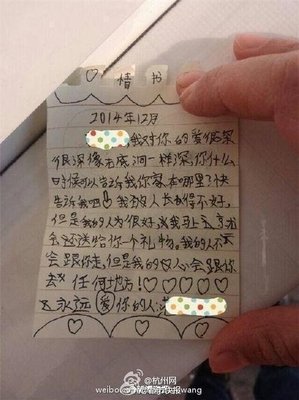 ♡情书
2014年12月
我对你的爱很深
很深像无底洞一样深,你什么
时候可以告诉我你家在哪里?快
告诉我吧!我致人长的得不好,
但是我的人为很好,
会还送给你一个礼物。我的人不
会跟你走,但是我的心会跟你
去任何地方!♡♡♡♡♡
永远爱你的人:
@杭州网
weibo.com/hangzhouwang